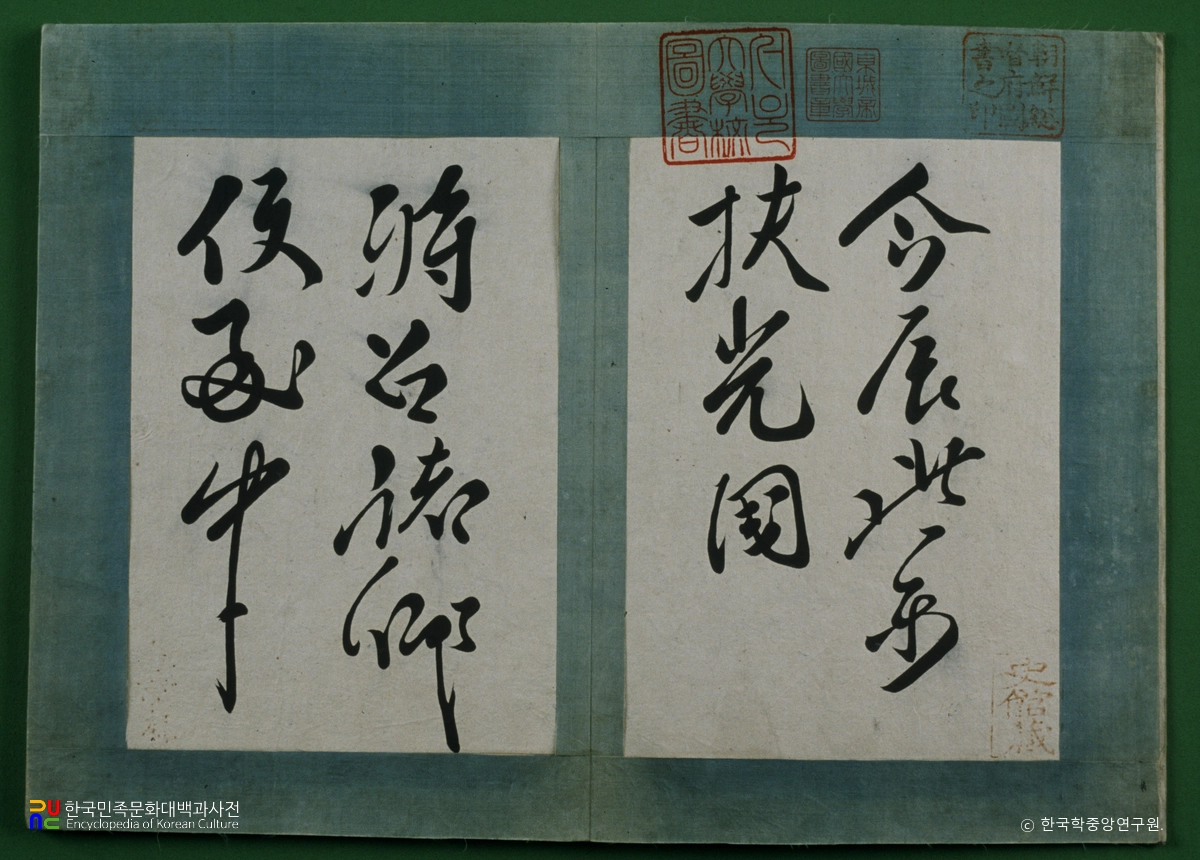 서울大學校圖書
京城帝國大學圖書章
朝鮮總督府圖書之印
今辰此
扶光
史館藏
將召諸卿
便
한국민족문화대백과사전
Encyclopedia of Korean Culture
© 한국학중앙연구원.